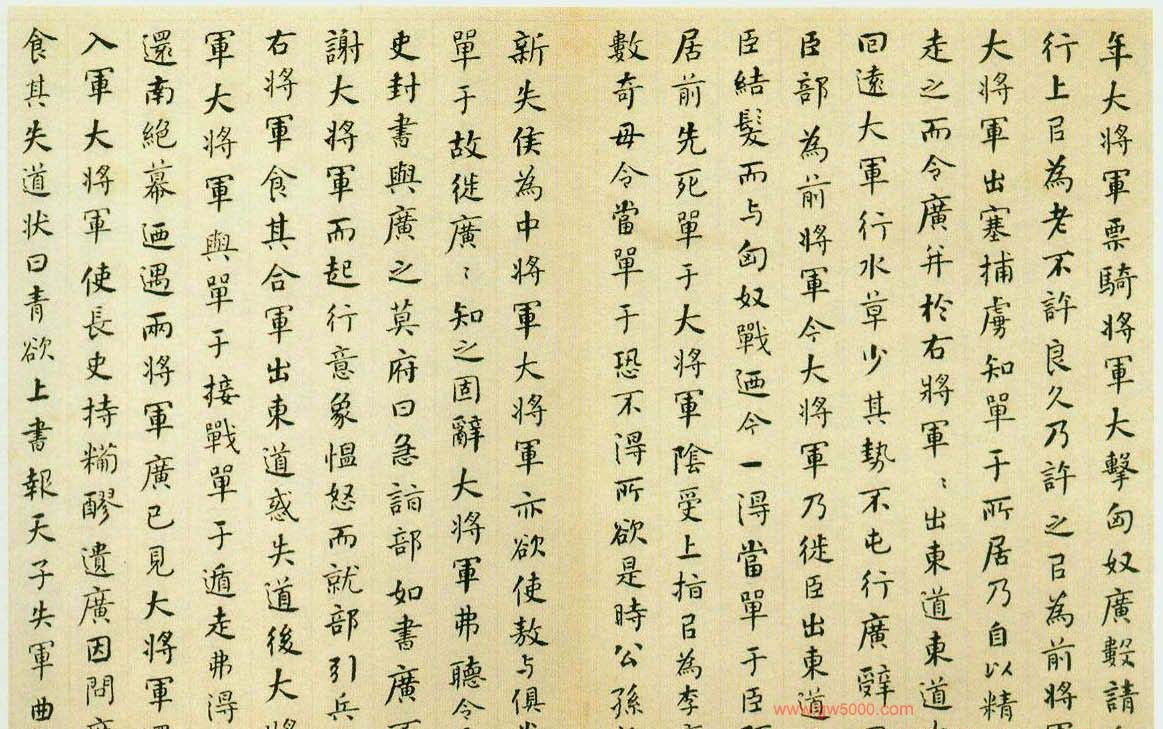 年大將軍票騎將軍大擊匈奴廣數請
行上㠯為老不許良久乃許之㠯為前將
大將軍出塞捕虜知單于所居乃自以精
走之而令廣并於右將軍〻出東道東道
回遠大軍行水草少其勢不屯行廣辭
臣部為前將軍今大將軍乃徙臣出東道
臣結髮而与匈奴戰迺今一得當單于臣
居前先死單于大將軍陰受上指㠯為李
數奇毋令當單于恐不得所欲是時公孫
新失侯為中將軍大將軍亦欲使敖与俱
單于故徙廣〻知之固辭大將軍弗聽令
史封書與廣之莫府曰急詣部如書廣
謝大將軍而起行意象愠怒而就部引兵
右將軍食其合軍出東道惑失道後大
軍大將軍與單于接戰單于遁走弗得
還南絕幕迺遇兩將軍廣已見大將軍
入軍大將軍使長史持糒醪遺廣因問
食其失道狀曰青欲上書報天子失軍曲
www.gw5000.com